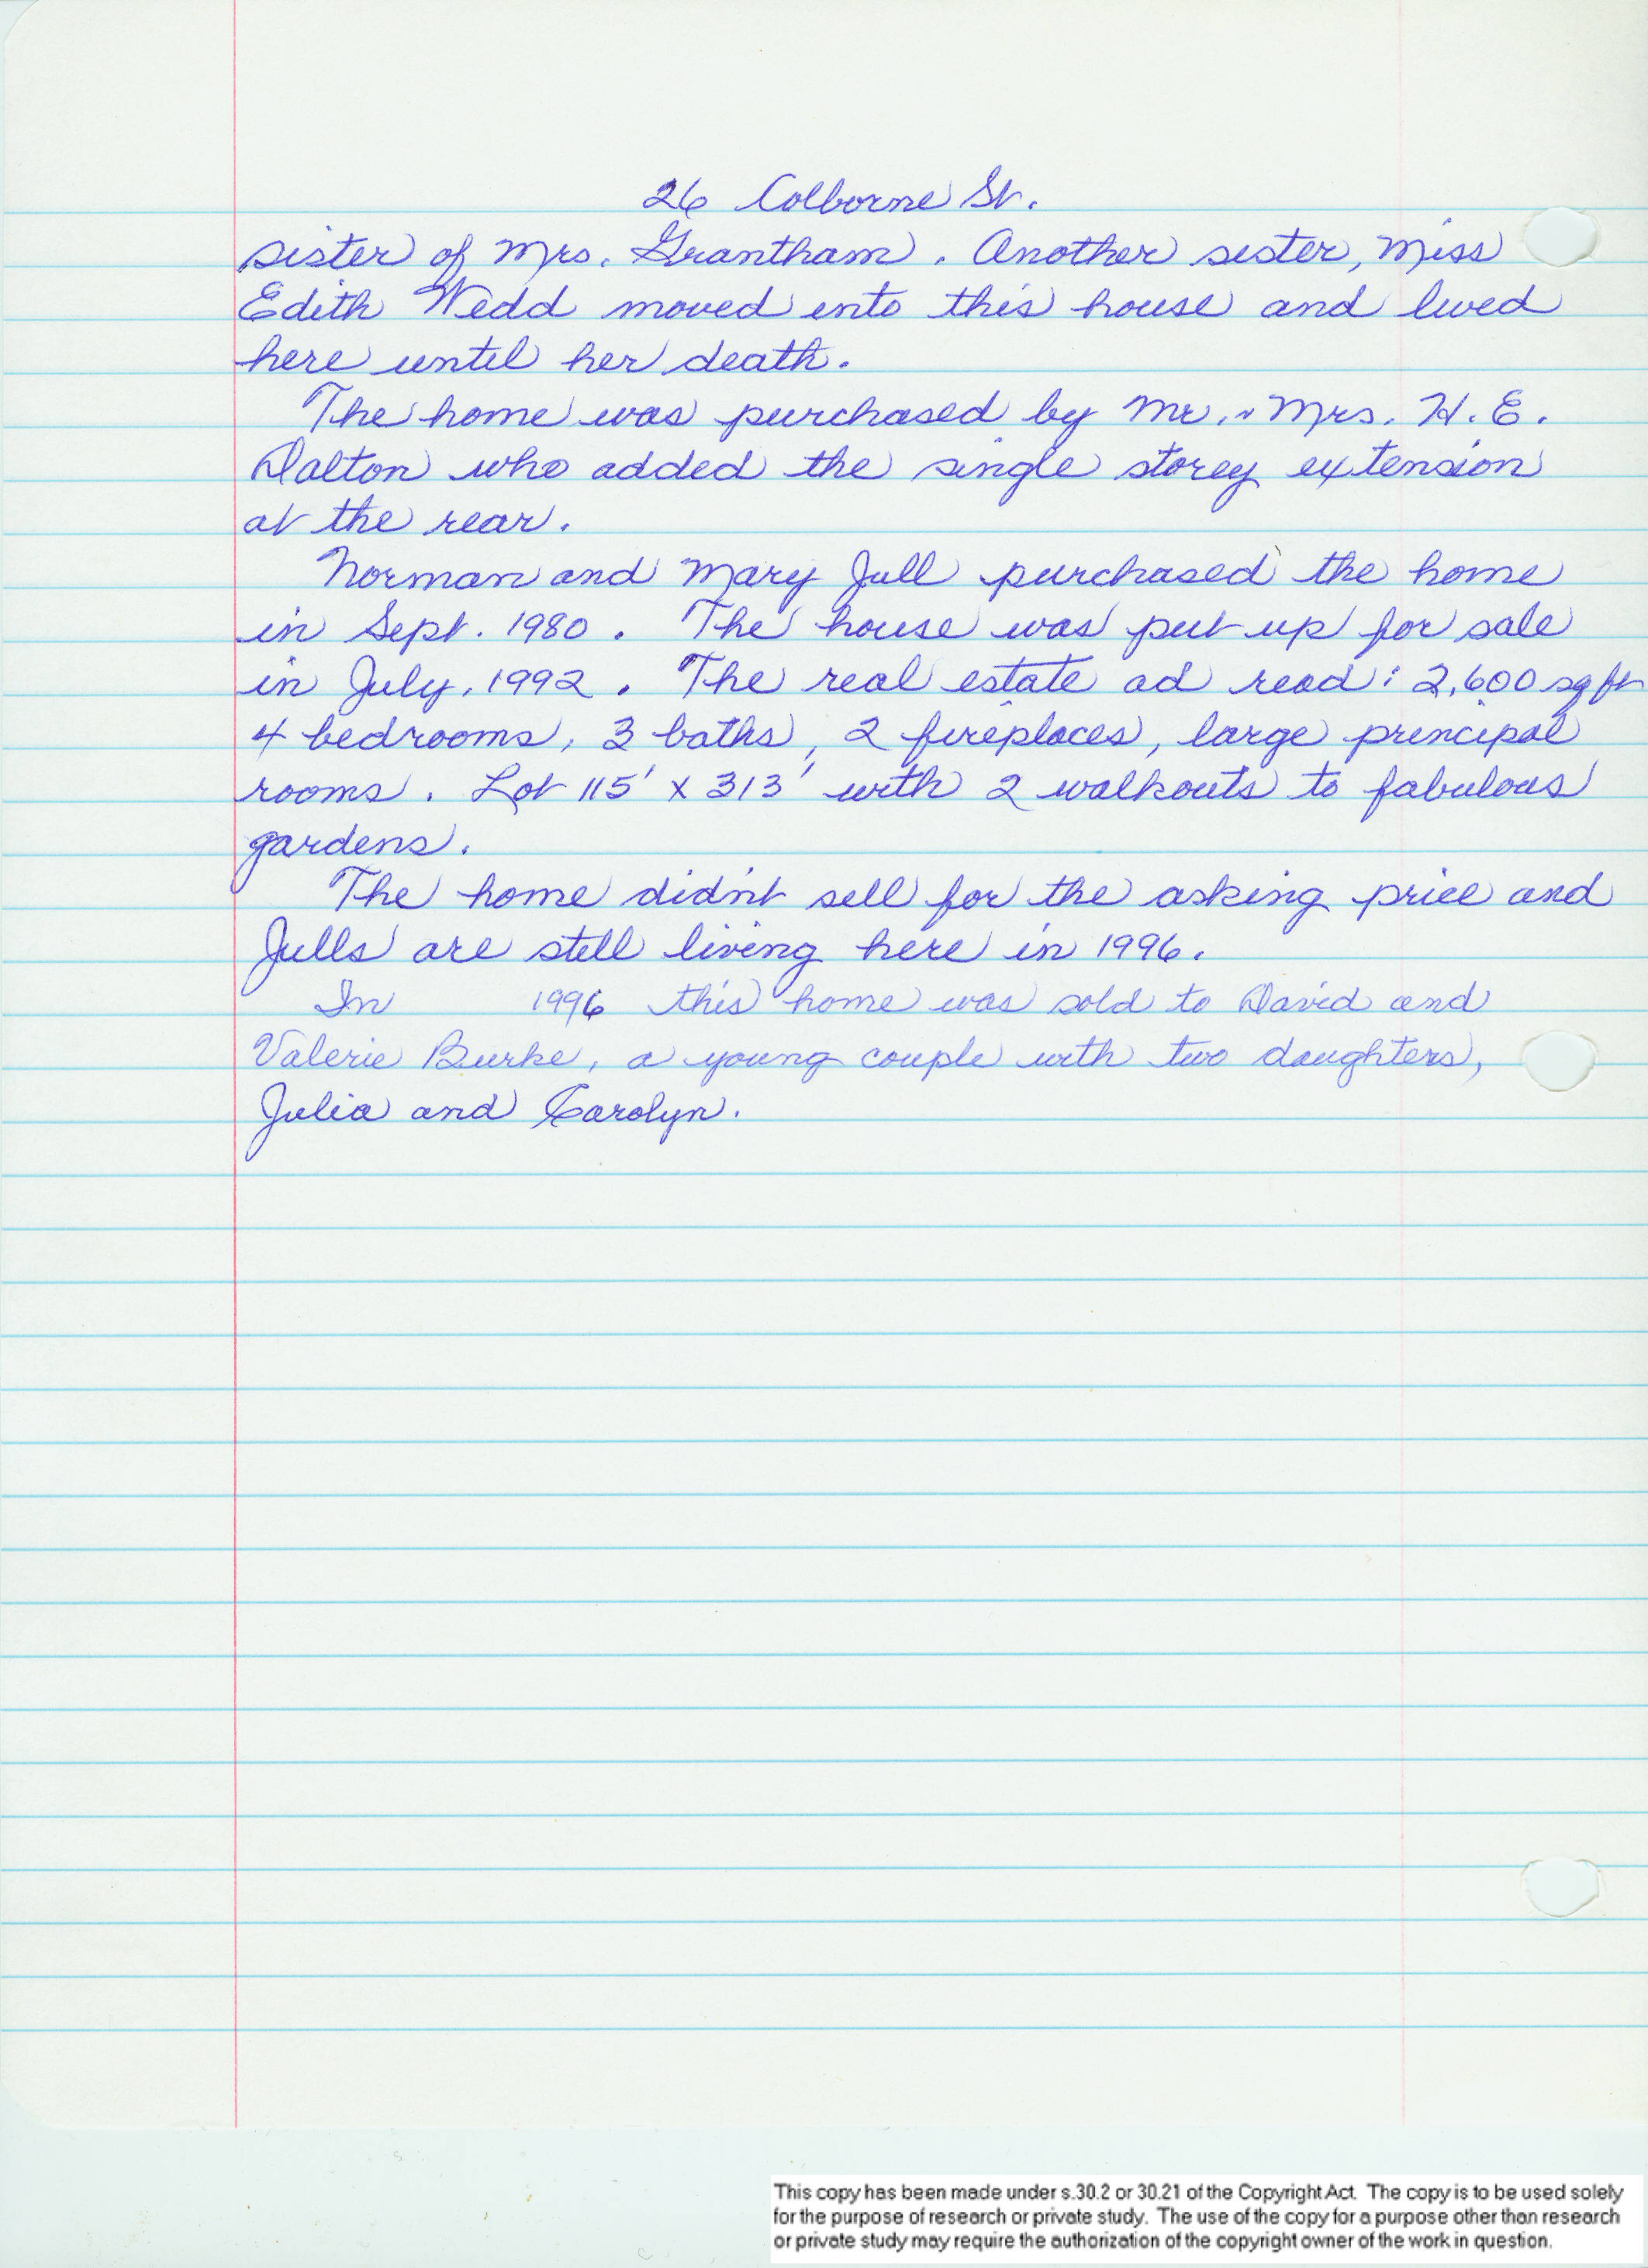 26 Colborne St.
sister of Mrs. Grantham. Another sister, Miss
Edith Wedd moved into this house and lived
here until her death.
The home was purchased by Mr. & Mrs. H. E.
Dalton who added the single storey extension
at the rear.
Norman and Mary Jull purchased the home
in Sept. 1980. The house was put up for sale
in July, 1992. The real estate ad read: 2,600 sq ft
4 bedrooms, 3 baths, 2 fireplaces, large principal
rooms. Lot 115' x 313' with 2 walkouts to fabulous
gardens.
The home didn't sell for the asking price and
Julls are still living here in 1996.
In 1996 this home was sold to David and
Valerie Burke, a young couple with two daughters,
Julia and Carolyn.
This copy has been made under s.30.2 or 30.21 of the Copyright Act. The copy is to be used solely
for the purpose of research or private study. The use of the copy for a purpose other than research
or private study may require the authorization of the copyright owner of the work in question.